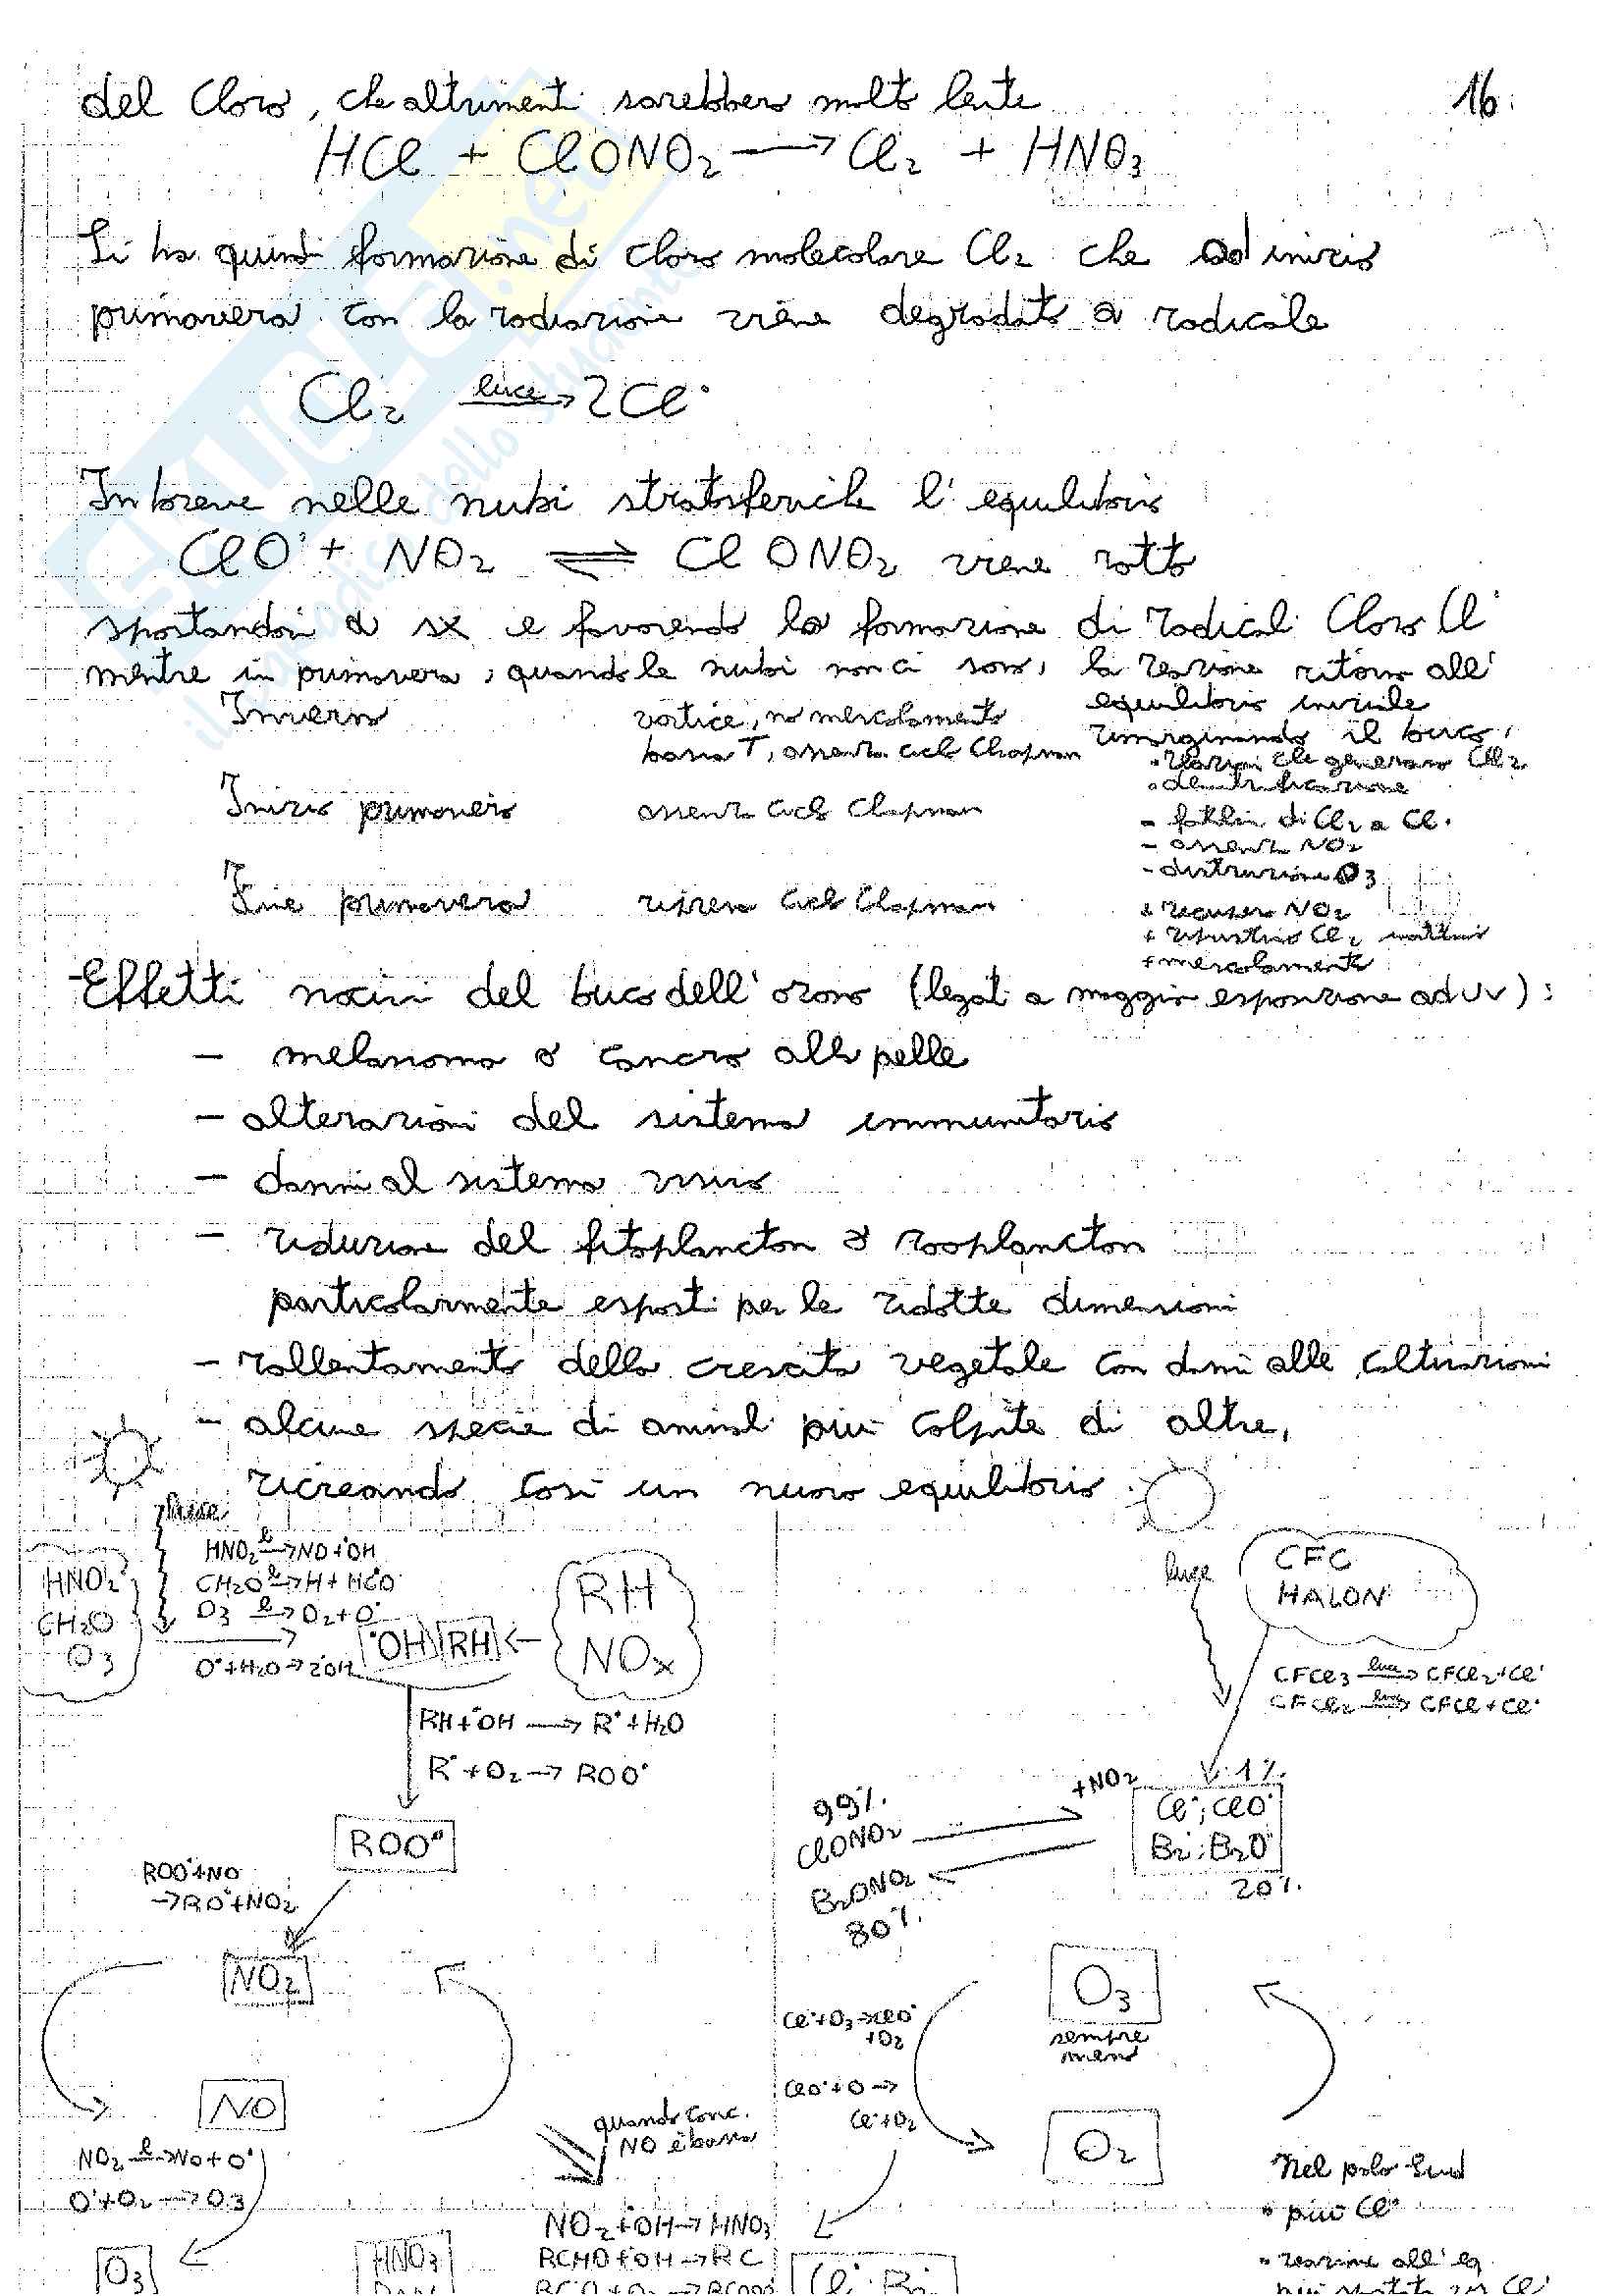 del Cloro, che altrimenti sarebbero molto lente
16
HCl + ClONO₂ → Cl₂ + HNO₃
Si ha quindi formazione di cloro molecolare Cl₂ che ad inizio
primavera con la radiazione viene degradato a radicale
Cl₂ luce→ 2Cl˙
In breve nelle nubi stratosferiche l'equilibrio
ClO˙ + NO₂ ⇌ ClONO₂ viene rotto
spostandosi a sx e favorendo la formazione di radicali Cloro Cl˙
mentre in primavera, quando le nubi non ci sono, la reazione ritorna all'
equilibrio iniziale
rimarginando il buco.
Inverno
vortice, no mescolamento
bassa T, assenza ciclo Chapman
• reazioni che generano Cl₂
• denitrificazione
Inizio primavera
assenza ciclo Chapman
- fotolisi di Cl₂ a Cl.
- assenza NO₂
- distruzione O₃
Fine primavera
ripresa ciclo Chapman
+ recupero NO₂
+ ripristino Cl₂ inattivi
+ mescolamento
Effetti nocivi del buco dell'ozono (legati a maggior esposizione ad UV):
- melanoma o cancro alla pelle
- alterazioni del sistema immunitario
- danni al sistema visivo
- riduzione del fitoplancton e zooplancton
particolarmente esposti per le ridotte dimensioni
- rallentamento della crescita vegetale con danni alle coltivazioni
- alcune specie di animali più colpite di altre,
ricreando così un nuovo equilibrio.
luce
HNO₂ l→ NO + ˙OH
CH₂O l→ H + HCO
O₃ l→ O₂ + O˙
O˙ + H₂O → 2˙OH
HNO₂
CH₂O
O₃
˙OH RH
RH
NOx
RH + ˙OH → R˙ + H₂O
R˙ + O₂ → ROO˙
ROO˙
ROO˙ + NO
→ RO˙ + NO₂
NO₂
NO
NO₂ l→ NO + O˙
O˙ + O₂ → O₃
O₃
quando conc.
NO è bassa
NO₂ + ˙OH → HNO₃
RCHO + ˙OH → RC
HNO₃
luce
CFC
HALON
CFCl₃ luce→ CFCl₂ + Cl˙
CFCl₂ luce→ CFCl + Cl˙
1%
+NO₂
Cl˙; ClO˙
Br˙; BrO˙
20%.
99%.
ClONO₂
BrONO₂
80%.
O₃
sempre
meno
Cl˙ + O₃ → ClO˙
+ O₂
ClO˙ + O →
Cl˙ + O₂
O₂
Nel polo Sud
• più Cl˙
• reazione all'eq.
Cl˙ Br˙